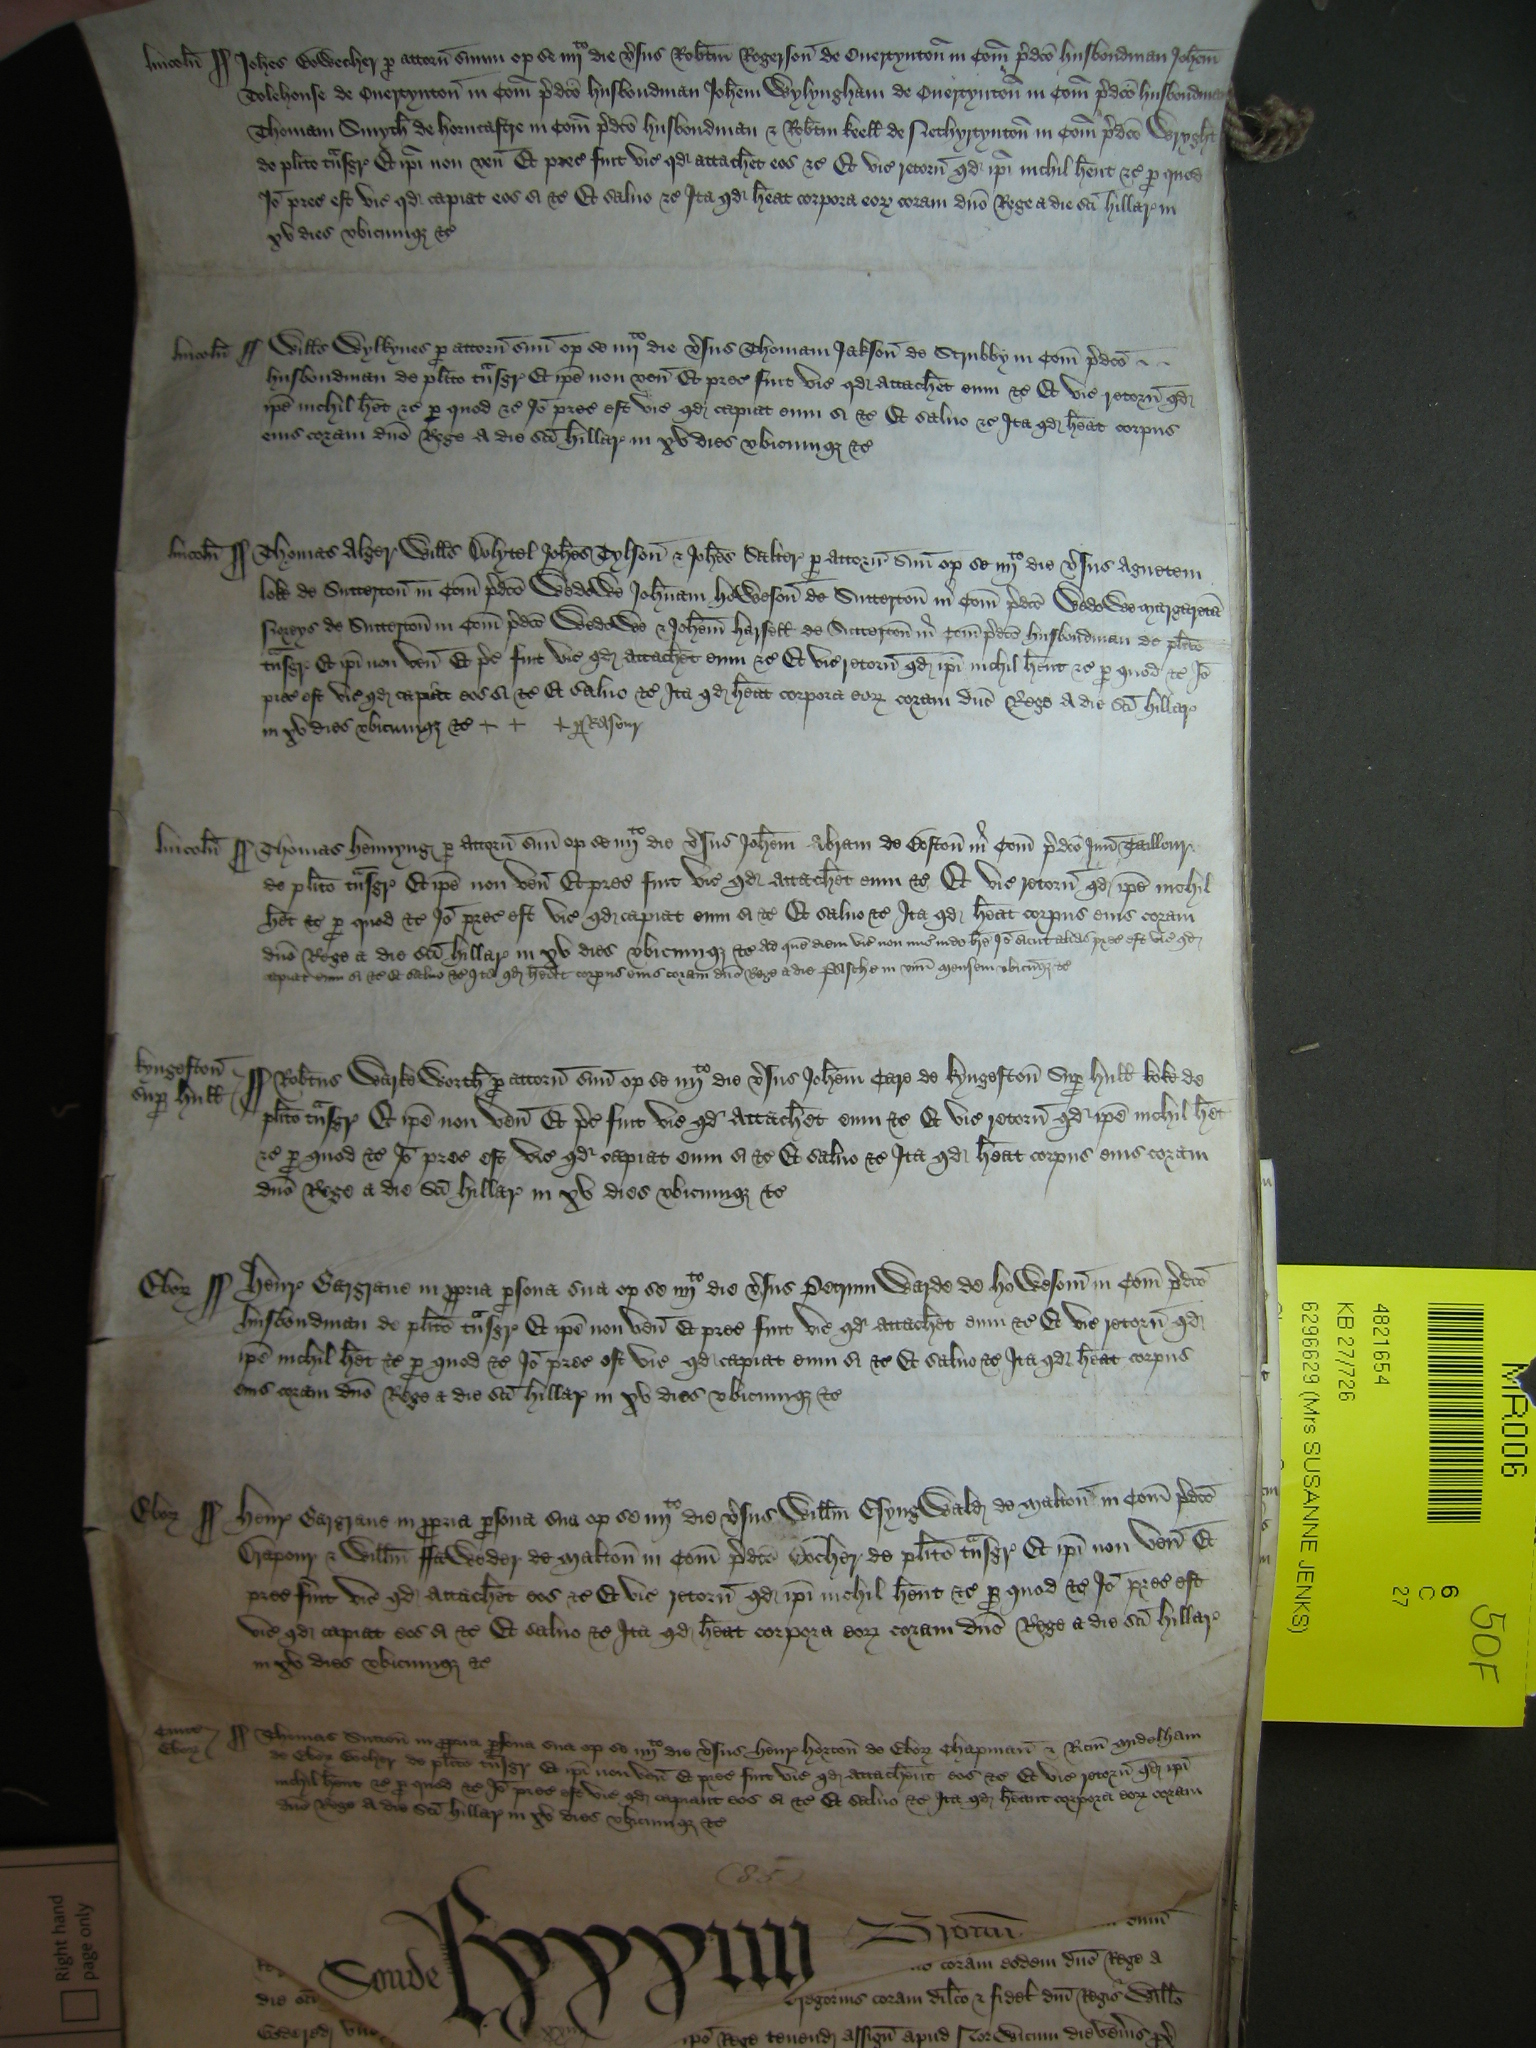 lincoln̄ Joh̄es Bowecher p attorn̄ suum op se iiijto die v̄sus Rob̄tm Rogerson̄ de Ouertynton̄ in Com̄ p̄dc̄o husbondman Joh̄em
Tolehouse de Ouertynton̄ in Com̄ p̄dc̄o husbondman Joh̄em Wylyngham de Ouertynton̄ in Com̄ p̄dc̄o husbondman
Thomam Smyth de horncastre in Com̄ p̄dc̄o husbondman & Rob̄tm kell de Nethyrtynton̄ in Com̄ p̄dc̄o Wryght
de pl̄ito tn̄sgr Et ip̄i non ven̄ Et prec̄ fuit vic̄ qd attach̄et eos &c Et vic̄ retorn̄ qd ip̄i nichil h̄ent &c p quod
Jō prec̄ est vic̄ qd capiat eos si &c Et saluo &c Ita qd h̄eat corpora eor coram dn̄o Rege a die sc̄i hillar in
xv dies vbicumq &c
lincoln̄ Will̄s Wylkynes p attorn̄ suū op se iiijto die v̄sus Thomam Jakson̄ de Strubby in Com̄ p̄dc̄o
husbondman de pl̄ito tn̄sgr Et ip̄e non ven̄ Et prec̄ fuit vic̄ qd attach̄et eum &c Et vic̄ retorn̄ qd
ip̄e nichil h̄et &c p quod &c Jō prec̄ est vic̄ qd capiat eum si &c Et saluo &c Ita qd h̄eat corpus
eius coram dn̄o Rege a die sc̄i hillar in xv dies vbicumq &c
lincoln̄ Thomas Alger Will̄s Joh̄es Tylson̄ & Joh̄es Salter p attorn̄ suū op se iiijto die v̄sus Agnetem
loke de Sutterton̄ in Com̄ p̄dc̄o Wedowe Joh̄nam howeson̄ de Sutterton̄ in Com̄ p̄dc̄o Wedowe margaretā
Noreys de Sutterton̄ in Com̄ p̄dc̄o Wedowe & Joh̄em harsell de Sutterton̄ in Com̄ p̄dc̄o husbondman de pl̄ito
tn̄sgr Et ip̄i non ven̄ Et p̄c fuit vic̄ qd attach̄et eum &c Et vic̄ retorn̄ qd ip̄i nichil h̄ent &c p quod &c Jō
prec̄ est vic̄ qd capiat eos si &c Et saluo &c Ita qd h̄eat corpora eor coram dn̄o Rege a die sc̄i hillar
in xv dies vbicumq &c + + +
lincoln̄ Thomas hennyng p attorn̄ suū op se iiijto die v̄sus Joh̄em Abram de Boston̄ in Com̄ p̄dc̄o Taillour
de pl̄ito tn̄sgr Et ip̄e non ven̄ Et prec̄ fuit vic̄ qd attach̄et eum &c Et vic̄ retorn̄ qd ip̄e nichil
h̄et &c p quod &c Jō prec̄ est vic̄ qd capiat eum si &c Et saluo &c Ita qd h̄eat corpus eius coram
dn̄o Rege a die sc̄i hillar in xv dies vbicumq &c Ad quē diem vic̄ non mis̄ Jō sicut alias prec̄ est vic̄ qd
capiat eum si &c Et saluo &c Ita qd h̄eat corpus eius coram dn̄o Rege a die pasche in vnū mensem vbicūq &c
kyngeston̄
sup hull Rob̄tus Warkeworth p attorn̄ suū op se iiijto die v̄sus Joh̄em Care de kyngeston̄ sup hull koke de
pl̄ito tn̄sgr Et ip̄e non ven̄ Et p̄c fuit vic̄ qd attach̄et eum &c Et vic̄ retorn̄ qd ip̄e nichil h̄et
&c p quod &c Jō prec̄ est vic̄ qd capiat eum si &c Et saluo &c Ita qd h̄eat corpus eius coram
dn̄o Rege a die sc̄i hillar in xv dies vbicumq &c
Ebor Henr Gargraue in ppria psona sua op se iiijto die v̄sus Petrum Warde de howesom̄ in Com̄ p̄dc̄o
husbondman de pl̄ito tn̄sgr Et ip̄e non ven̄ Et prec̄ fuit vic̄ qd attach̄et eum &c Et vic̄ retorn̄ qd
ip̄e nichil h̄et &c p quod &c Jō prec̄ est vic̄ qd capiat eum si &c Et saluo &c Ita qd h̄eat corpus
eius coram dn̄o Rege a die sc̄i hillar in xv dies vbicumq &c
Ebor Henr Gargraue in ppria psona sua op se iiijto die v̄sus Will̄m Esyngwald de malton̄ in Com̄ p̄dc̄o
Drapour & Will̄m ffaweder de malton̄ in Com̄ p̄dc̄o Bocher de pl̄ito tn̄sgr Et ip̄i non ven̄ Et
prec̄ fuit vic̄ qd attach̄et eos &c Et vic̄ retorn̄ qd ip̄i nichil h̄ent &c p quod &c Jō prec̄ est
vic̄ qd capiat eos si &c Et saluo &c Ita qd h̄eat corpora eor coram dn̄o Rege a die sc̄i hillar
in xv dies vbicumq &c
Ciuit
Ebor Thomas Sutton̄ in ppria psona sua op se iiijto die v̄sus henr horton̄ de Ebor Chapman̄ & Ric̄m midelham
de Ebor Bocher de pl̄ito tn̄sgr Et ip̄i non ven̄ Et prec̄ fuit vic̄ qd attach̄ent eos &c Et vic̄ retorn̄ qd ip̄i
nichil h̄ent &c p quod &c Jō prec̄ est vic̄ qd capiant eos si &c Et saluo &c Ita qd h̄eant corpora eor coram
dn̄o Rege a die sc̄i hillar in xv dies vbicumq &c
(85)
Sonde
coram eodem dn̄o Rege a
coram dil̄co & fidel dn̄i Regis Will̄o
Rege tenend assign̄ apud Norwicum die
MR006
4821654
KB 27/726
6296629 (Mrs SUSANNE JENKS)
6
C
27
50F
Right hand
page only